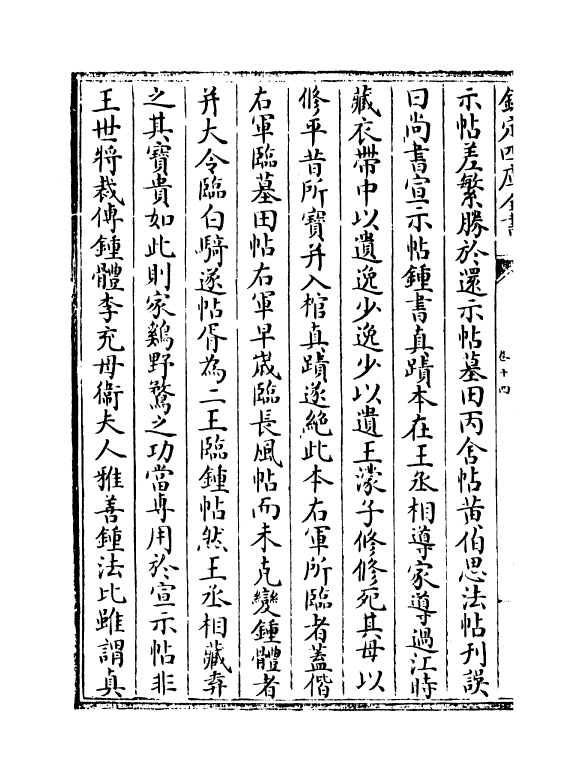 欽定四庫全書
卷十四
示帖差繁勝於還示帖墓田丙舍帖黄伯思法帖刋誤
曰尚書宣示帖鍾書真蹟本在王丞相導家導過江時
藏衣帶中以遺逸少逸少以遺王濛子修修死其母以
修平昔所寶并入棺真蹟遂絶此本右軍所臨者蓋偕
右軍臨墓田帖右軍早歳臨長風帖而未克變鍾體者
并大令臨白騎遂帖胥為二王臨鍾帖然王丞相藏弆
之其寶貴如此則家鷄野鶩之功當専用於宣示帖非
王世將裁傳鍾體李充母衞夫人雅善鍾法比雖謂真